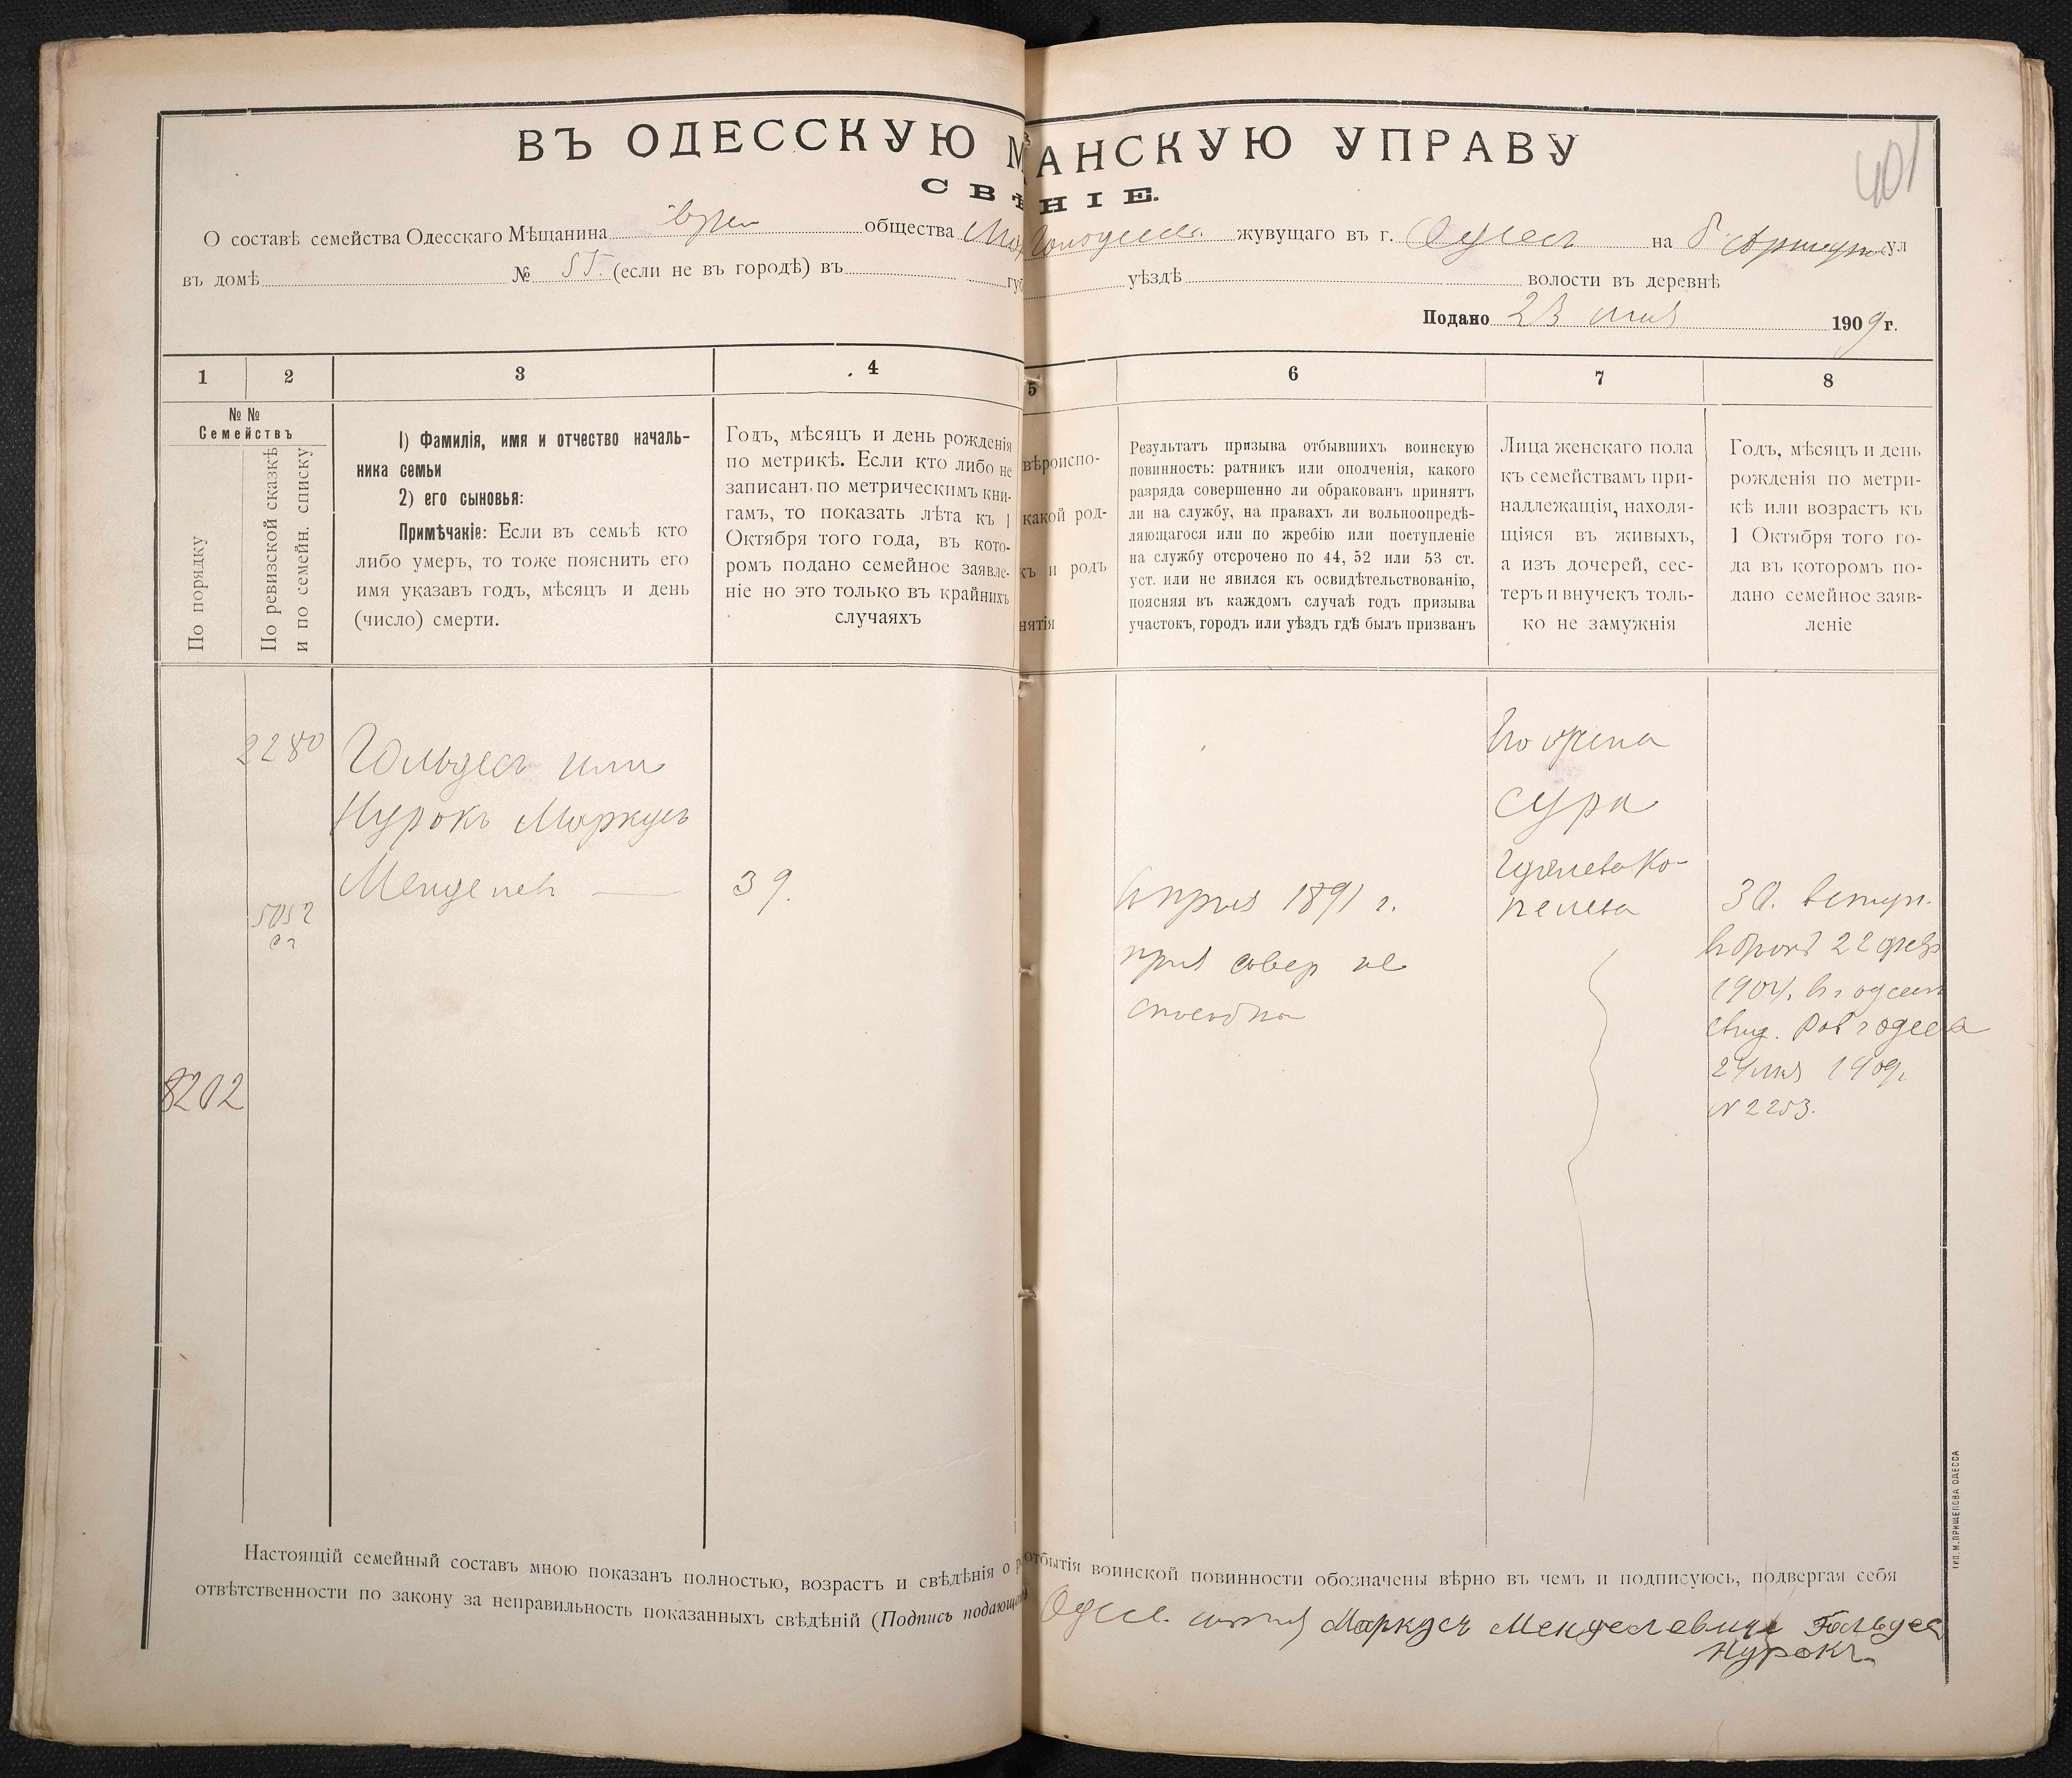 ВЪ ОДЕССКУЮ М АНСКУЮ УПРАВУ
СВѢ НІЕ.
401
О составѣ семейства Одесскаго Мѣщанина евреи общества жувущаго въ г. Одесса на Б. Арнаутс ул
въ домѣ № 55 (если не въ городѣ) въ губ уѣздѣ волости въ деревнѣ
Подано 23 1909 г.
1 2 3 4 5 6 7 8
№ №
Семействъ
По порядку
По ревизской сказкѣ
и по семейн. списку
1) Фамилія, имя и отчество началь-
ника семьи
2) его сыновья:
Примѣчаніе: Если въ семьѣ кто
либо умеръ, то тоже пояснить его
имя указавъ годъ, мѣсяцъ и день
(число) смерти.
Годъ, мѣсяцъ и день рожденія
по метрикѣ. Если кто либо не
записанъ по метрическимъ кни-
гамъ, то показать лѣта къ 1
Октября того года, въ кото-
ромъ подано семейное заявле-
ніе но это только въ крайнихъ
случаяхъ
вѣроиспо-
какой род-
къ и родъ
нятія
Результатъ призыва отбывшихъ воинскую
повинность: ратникъ или ополченія, какого
разряда совершенно ли обракованъ принятъ
ли на службу, на правахъ ли вольноопредѣ-
ляющагося или по жребію или поступленіе
на службу отсрочено по 44, 52 или 53 ст.
уст. или не явился къ освидѣтельствованію,
поясняя въ каждомъ случаѣ годъ призыва
участокъ, городъ или уѣздъ гдѣ былъ призванъ
Лица женскаго пола
къ семействамъ при-
надлежащія, находя-
щіяся въ живыхъ,
а изъ дочерей, сес-
теръ и внучекъ толь-
ко не замужнія
Годъ, мѣсяцъ и день
рожденія по метри-
кѣ или возрастъ къ
1 Октября того го-
да въ которомъ по-
дано семейное заяв-
леніе
2280
Гольдесъ или
Нурокъ Маркусъ
Менделев
5052
39.
8202
1891 г.
совер не
способн
Его жена
Сура
30. вступ.
в бракъ 22 фев
1904. в г одесс
свид. Рав г одесса
1909
№ 2253.
Настоящій семейный составъ мною показанъ полностью, возрастъ и свѣдѣнія о р отбытія воинской повинности обозначены вѣрно въ чемъ и подписуюсь, подвергая себя
отвѣтственности по закону за неправильность показанныхъ свѣдѣній (Подпись подающа Одесс. Маркусъ Менделевичъ Гольдес
Нурокъ
ТИП. М. ПРИЩЕПОВА ОДЕССА